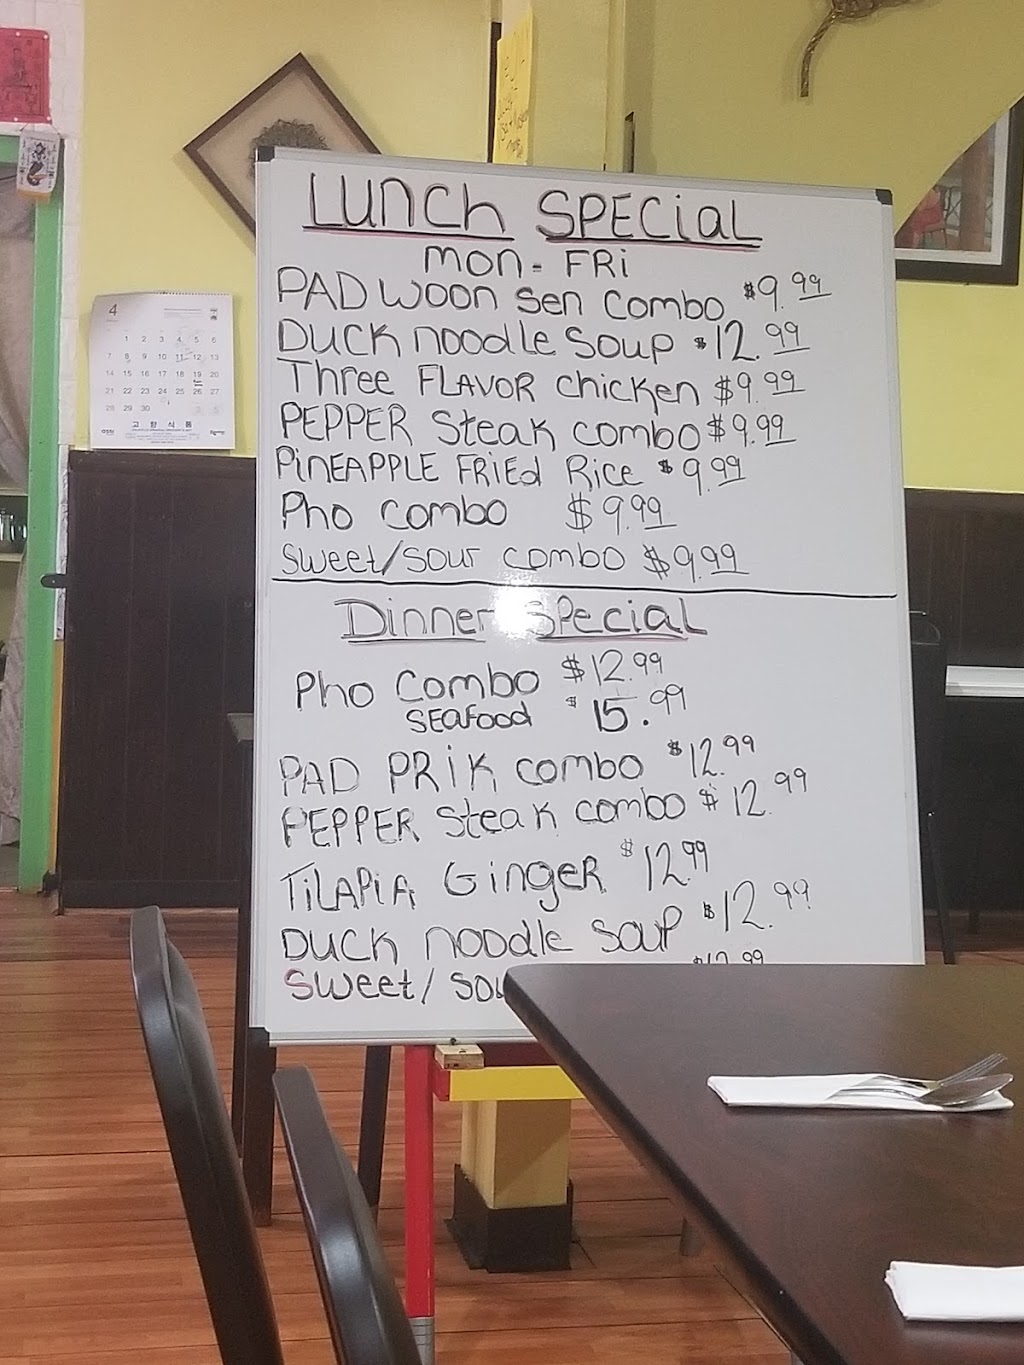 LUNCH SPECIAL
MON - FRI
PAD WOON SEN COMBO $9.99
DUCK NOODLE SOUP $12.99
THREE FLAVOR CHICKEN $9.99
PEPPER STEAK COMBO $9.99
PINEAPPLE FRIED RICE $9.99
PHO COMBO $9.99
SWEET/SOUR COMBO $9.99
Dinner Special
PHO COMBO $12.99
SEAFOOD $15.99
PAD PRIK COMBO $12.99
PEPPER STEAK COMBO $12.99
TILAPIA GINGER $12.99
DUCK NOODLE SOUP $12.99
SWEET/ SOU
4
1 2 3 4 5 6
7 8 9 10 11 12 13
14 15 16 17 18 19 20
21 22 23 24 25 26 27
28 29 30
고향식품